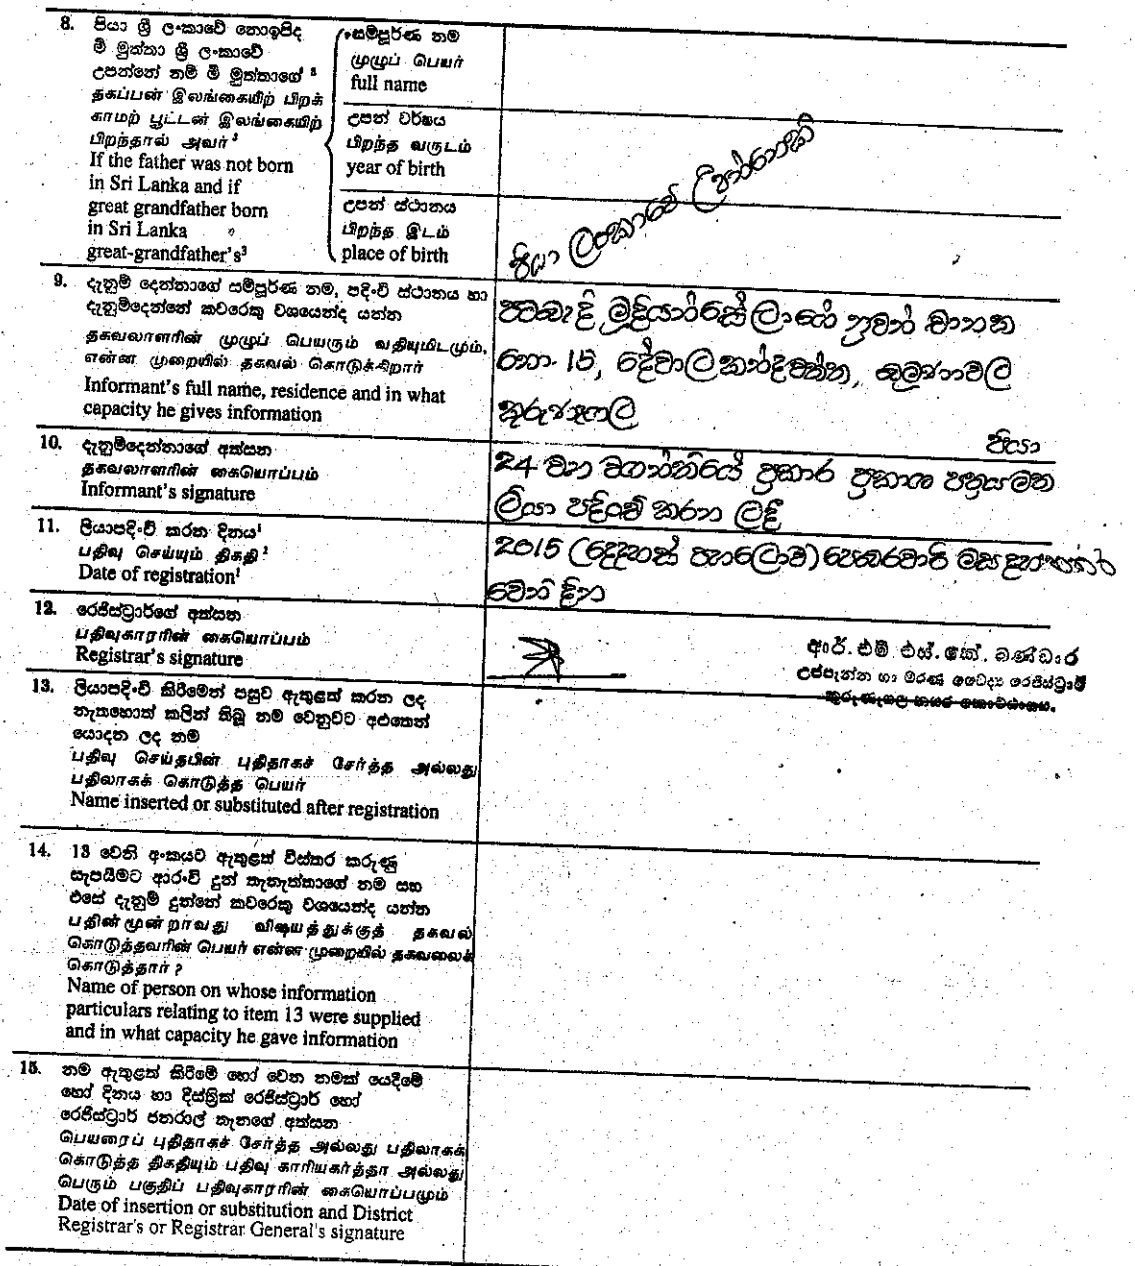 8. පියා ශ්‍රී ලංකාවේ නොඉපිද
මී මුත්තා ශ්‍රී ලංකාවේ
උපන්නේ නම් මී මුත්තාගේ ³
தகப்பன் இலங்கையிற் பிறக்
காமற் பூட்டன் இலங்கையிற்
பிறந்தால் அவர் ³
If the father was not born
in Sri Lanka and if
great grandfather born
in Sri Lanka
great-grandfather's³
සම්පූර්ණ නම
முழுப் பெயர்
full name
උපන් වර්ෂය
பிறந்த வருடம்
year of birth
උපන් ස්ථානය
பிறந்த இடம்
place of birth
පියා ලංකාවේ උපන්නෙකි
9. දැනුම් දෙන්නාගේ සම්පූර්ණ නම, පදිංචි ස්ථානය හා
දැනුම්දෙන්නේ කවරෙකු වශයෙන්ද යන්න
தகவலாளரின் முழுப் பெயரும் வதியுமிடமும்,
என்ன முறையில் தகவல் கொடுக்கிறார்
Informant's full name, residence and in what
capacity he gives information
මුදියන්සේලාගේ නුවන් චානක
නො. 15, දේවාල කන්දවත්ත,
කුරුණෑගල
පියා
10. දැනුම්දෙන්නාගේ අත්සන
தகவலாளரின் கையொப்பம்
Informant's signature
24 වන වගන්තියේ ප්‍රකාර ප්‍රකාශ පත්‍රයමත
ලියා පදිංචි කරන ලදී
11. ලියාපදිංචි කරන දිනය¹
பதிவு செய்யும் திகதி ¹
Date of registration¹
2015 (දෙදහස් පහලොව) පෙබරවාරි මස
වෙනි දින
12. රෙජිස්ට්‍රාර්ගේ අත්සන
பதிவுகாரரின் கையொப்பம்
Registrar's signature
ආර්. එම්. එස්. කේ. බණ්ඩාර
උප්පැන්න හා මරණ වෛද්‍ය රෙජිස්ට්‍රාර්
කුරුණෑගල නගර කොට්ඨාශය.
13. ලියාපදිංචි කිරීමෙන් පසුව ඇතුළත් කරන ලද
නැතහොත් කලින් තිබූ නම වෙනුවට අළුතෙන්
යොදන ලද නම
பதிவு செய்தபின் புதிதாகச் சேர்த்த அல்லது
பதிலாகக் கொடுத்த பெயர்
Name inserted or substituted after registration
14. 13 වෙනි අංකයට ඇතුළත් විස්තර කරුණු
සැපයීමට ආරංචි දුන් තැනැත්තාගේ නම සහ
එසේ දැනුම් දුන්නේ කවරෙකු වශයෙන්ද යන්න
பதின்மூன்றாவது விஷயத்துக்குத் தகவல்
கொடுத்தவரின் பெயர் என்ன முறையில் தகவலைக்
கொடுத்தார் ?
Name of person on whose information
particulars relating to item 13 were supplied
and in what capacity he gave information
15. නම ඇතුළත් කිරීමේ හෝ වෙන නමක් යෙදීමේ
හෝ දිනය හා දිස්ත්‍රික් රෙජිස්ට්‍රාර් හෝ
රෙජිස්ට්‍රාර් ජනරාල් තැනගේ අත්සන
பெயரைப் புதிதாகச் சேர்த்த அல்லது பதிலாகக்
கொடுத்த திகதியும் பதிவு காரியகர்த்தா அல்லது
பெரும் பகுதிப் பதிவுகாரரின் கையொப்பமும்
Date of insertion or substitution and District
Registrar's or Registrar General's signature